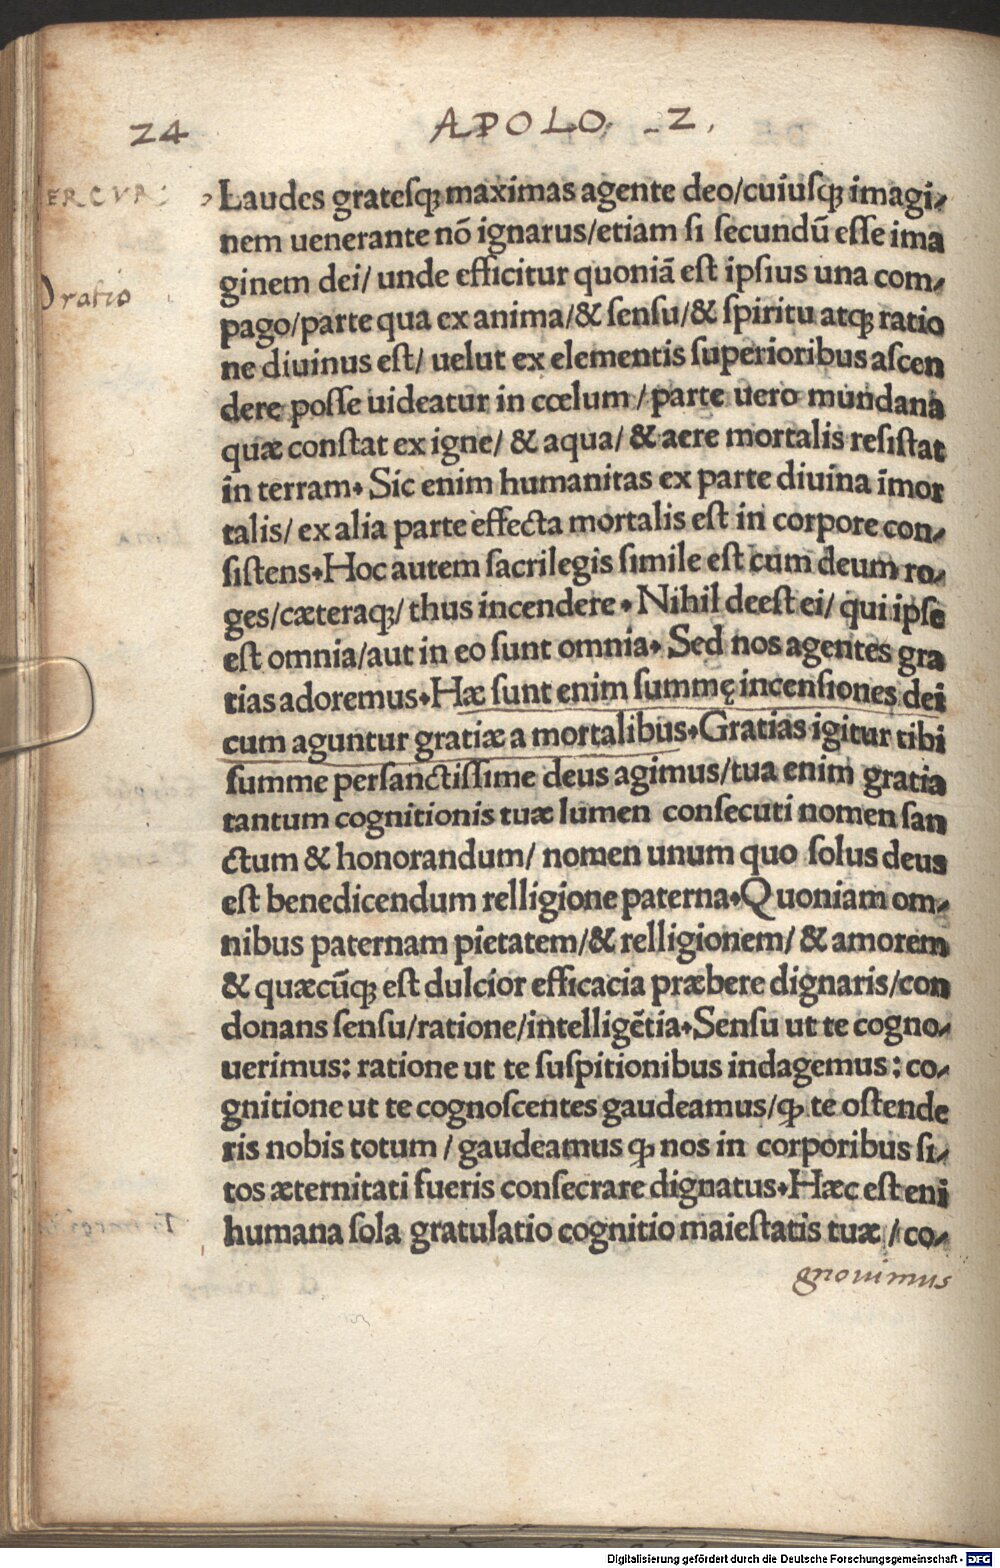 24 APOLO - 2.
ERCVR:
Laudes gratesqꝫ maximas agente deo/cuiusqꝫ imagi-
nem uenerante nõ ignarus/etiam si secundũ esse ima
Oratio
ginem dei/ unde efficitur quoniã est ipsius una com-
pago/parte qua ex anima/& sensu/& spiritu atqꝫ ratio
ne diuinus est/ uelut ex elementis superioribus ascen
dere posse uideatur in cœlum/parte uero mundana
quæ constat ex igne/ & aqua/ & aere mortalis resistat
in terram. Sic enim humanitas ex parte diuina ĩmor
talis/ ex alia parte effecta mortalis est in corpore con-
sistens. Hoc autem sacrilegis simile est cum deum ro-
ges/cæteraqꝫ/ thus incendere. Nihil deest ei/ qui ipse
est omnia/aut in eo sunt omnia. Sed nos agentes gra
tias adoremus. Hæ sunt enim summę incensiones dei
cum aguntur gratiæ a mortalibus. Gratias igitur tibi
summe persanctissime deus agimus/tua enim gratia
tantum cognitionis tuæ lumen consecuti nomen san
ctum & honorandum/ nomen unum quo solus deus
est benedicendum relligione paterna. Quoniam om-
nibus paternam pietatem/& relligionem/ & amorem
& quæcũqꝫ est dulcior efficacia præbere dignaris/con
donans sensu/ratione/intelligẽtia. Sensu ut te cogno-
uerimus: ratione ut te suspitionibus indagemus: co-
gnitione ut te cognoscentes gaudeamus/qꝫ te ostende
ris nobis totum/ gaudeamus qꝫ nos in corporibus si-
tos æternitati fueris consecrare dignatus. Hæc est eni
humana sola gratulatio cognitio maiestatis tuæ/ co-
gnouimus
Digitalisierung gefördert durch die Deutsche Forschungsgemeinschaft - DFG